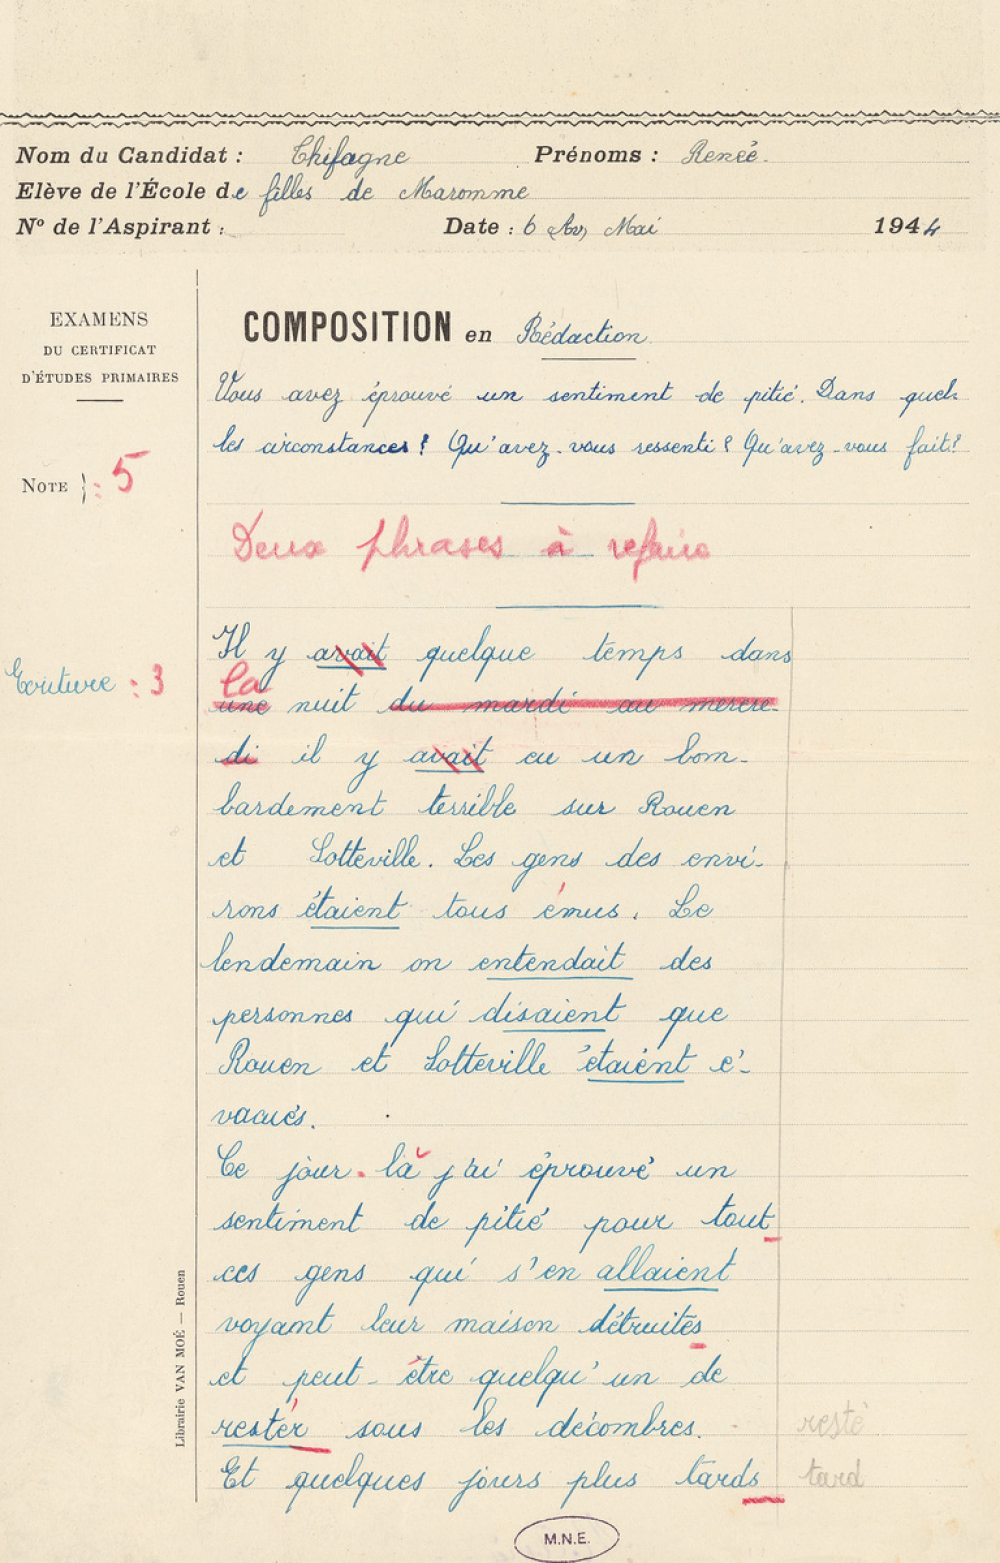 Nom du Candidat : Thifagne Prénoms : Renée.
Elève de l'École de filles de Maromme
Nº de l'Aspirant : Date : 6 Mai 1944
EXAMENS
DU CERTIFICAT
D'ÉTUDES PRIMAIRES
COMPOSITION en Rédaction
Vous avez éprouvé un sentiment de pitié. Dans quel-
les circonstances ? Qu'avez-vous ressenti ? Qu'avez-vous fait ?
NOTE : 5
Deux phrases à refaire
Ecriture : 3
Il y avait quelque temps dans
la
une nuit du mardi au mercre-
di il y avait eu un bom-
bardement terrible sur Rouen
et Sotteville. Les gens des envi-
rons étaient tous émus. Le
lendemain on entendait des
personnes qui disaient que
Rouen et Sotteville étaient é-
vacués.
Ce jour-là j'ai éprouvé un
sentiment de pitié pour tout
ces gens qui s'en allaient
voyant leur maison détruites
et peut-être quelqu'un de
rester sous les décombres. resté
Et quelques jours plus tards tard
Librairie VAN MOÉ — Rouen
M.N.E.